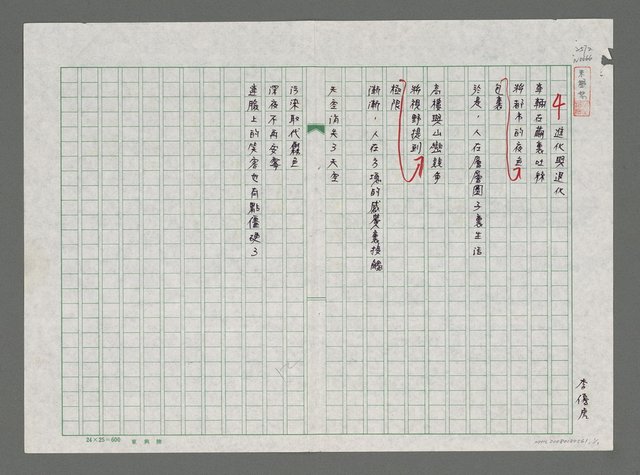 2512
N0066
4
進化與退化
車輛在繭裏吐絲
將都市的夜色
包裹
於是，人在層層圈子裏生活
高樓與山巒競爭
將視野提到
極限
漸漸，人在多塊的感覺裏接觸
天空消失了天空
污染取代霧色
深夜不再安寧
連臉上的笑容也有點僵硬了
李優虎
24×25=600